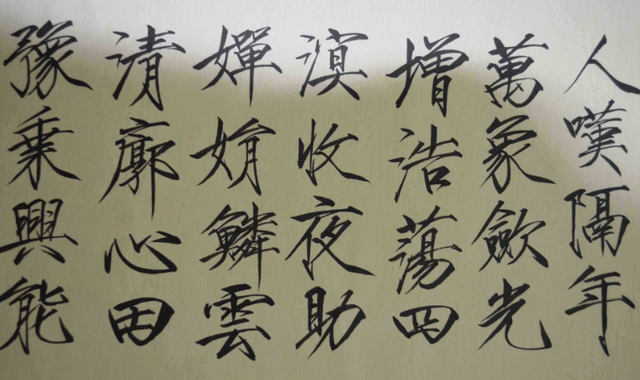 人嘆隔年
萬象歛光
增浩蕩四
溟收夜助
嬋娟鱗雲
清廓心田
豫乘興能